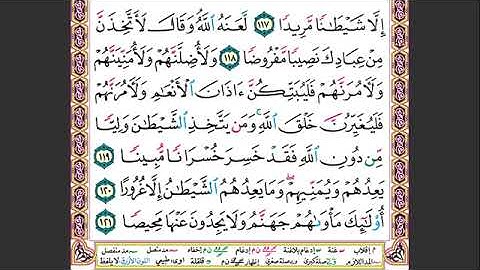 إِلَّا شَيْطَٰنًا مَّرِيدًا ١١٧ لَّعَنَهُ ٱللَّهُ وَقَالَ لَأَتَّخِذَنَّ
مِنْ عِبَادِكَ نَصِيبًا مَّفْرُوضًا ١١٨ وَلَأُضِلَّنَّهُمْ وَلَأُمَنِّيَنَّهُمْ
وَلَءَامُرَنَّهُمْ فَلَيُبَتِّكُنَّ ءَاذَانَ ٱلْأَنْعَٰمِ وَلَءَامُرَنَّهُمْ
فَلَيُغَيِّرُنَّ خَلْقَ ٱللَّهِ ۚ وَمَن يَتَّخِذِ ٱلشَّيْطَٰنَ وَلِيًّا
مِّن دُونِ ٱللَّهِ فَقَدْ خَسِرَ خُسْرَانًا مُّبِينًا ١١٩
يَعِدُهُمْ وَيُمَنِّيهِمْ ۖ وَمَا يَعِدُهُمُ ٱلشَّيْطَٰنُ إِلَّا غُرُورًا ١٢٠
أُو۟لَٰٓئِكَ مَأْوَىٰهُمْ جَهَنَّمُ وَلَا يَجِدُونَ عَنْهَا مَحِيصًا ١٢١